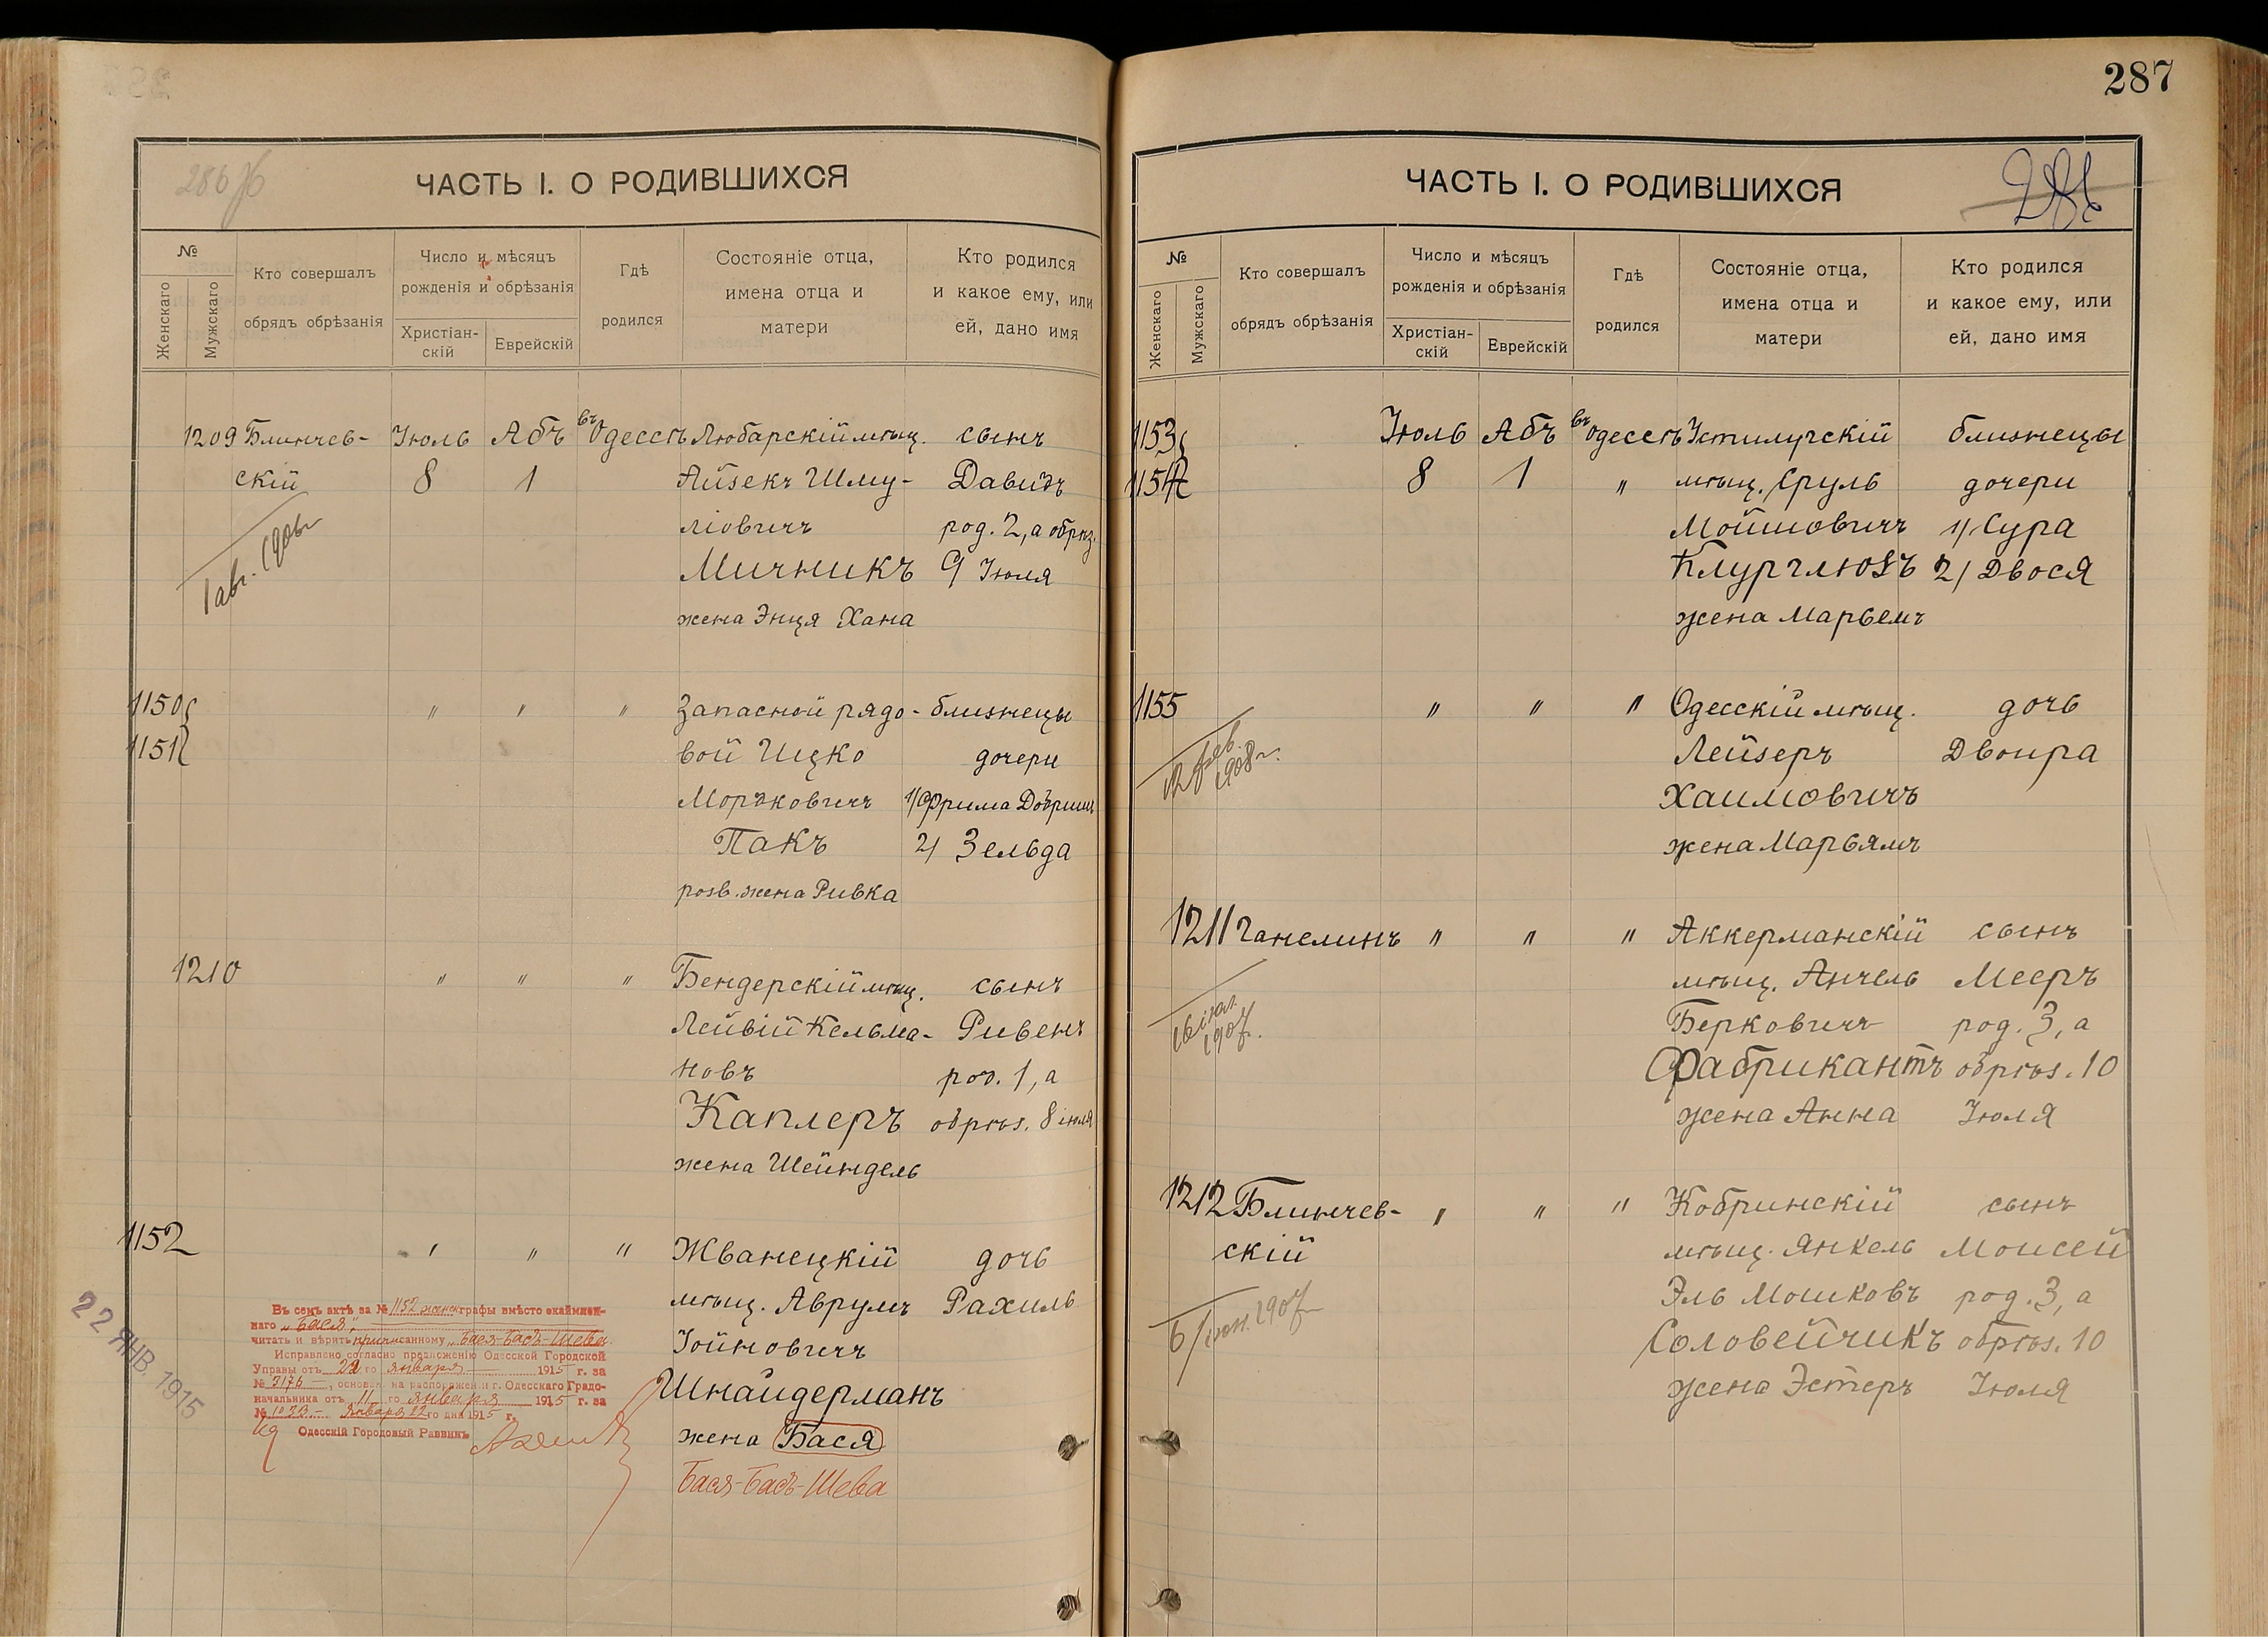 287
286 об
ЧАСТЬ I. О РОДИВШИХСЯ
№
Женскаго
Мужскаго
Кто совершалъ
обрядъ обрѣзанія
Число и мѣсяцъ
рожденія и обрѣзанія
Христіан-
скій
Еврейскій
Гдѣ
родился
Состояніе отца,
имена отца и
матери
Кто родился
и какое ему, или
ей, дано имя
1209 Блинчев- Іюль Абъ въ Одессѣ Любарскій мѣщ. сынъ
скій 8 1 Айзекъ Шму- Давидъ
ліовичъ род. 2, а обрѣз.
Мичникъ 9 Іюля
жена Энця Хана
1 авг. 1906 г.
1150 " " " Запасной рядо- близнецы
1151 вой Ицко дочери
Мордковичъ 1/ Фрима Добриш
Пакъ 2/ Зельда
розв. жена Ривка
1210 " " " Бендерскій мѣщ. сынъ
Лейвій Кельма- Ривенъ
новъ род. 1, а
Каплеръ обрѣз. 8 іюля
жена Шейндель
1152 " " " Жванецкій дочь
мѣщ. Аврумъ Рахиль
Іойновичъ
Шнайдерманъ
жена Бася
Бася-Басъ-Шева
22 ЯНВ. 1915
Въ семъ актѣ за № 1152 женск графы вмѣсто окаймлен-
наго „Бася"
читать и вѣрить приписанному „Бася-Басъ-Шева
Исправлено согласно предложенію Одесской Городской
Управы отъ 22 го января 1915 г. за
№ 3176 —, основан. на распоряженіи г. Одесскаго Градо-
начальника отъ 11 го января 1915 г. за
№ Января 22 го дня 1915 г.
Одесскій Городовый Раввинъ
ЧАСТЬ I. О РОДИВШИХСЯ
№
Женскаго
Мужскаго
Кто совершалъ
обрядъ обрѣзанія
Число и мѣсяцъ
рожденія и обрѣзанія
Христіан-
скій
Еврейскій
Гдѣ
родился
Состояніе отца,
имена отца и
матери
Кто родился
и какое ему, или
ей, дано имя
1153 Іюль Абъ въ Одессѣ Устилугскій близнецы
1154 8 1 " мѣщ. Сруль дочери
Мойшовичъ 1/ Сура
Клургглюзъ 2/ Двося
жена Марьемъ
1155 " " " Одесскій мѣщ. дочь
Лейзеръ Двойра
Хаимовичъ
жена Марьямъ
12 фев. 1908 г.
1211 Ганелинъ " " " Аккерманскій сынъ
мѣщ. Анчель Мееръ
Берковичъ род. 3, а
Фабрикантъ обрѣз. 10
жена Анна Іюля
16 іюл. 1907.
1212 Блинчев- " " " Кобринскій сынъ
скій мѣщ. Янкель Моисей
Эль Мошковъ род. 3, а
Соловейчикъ обрѣз. 10
жена Эстеръ Іюля